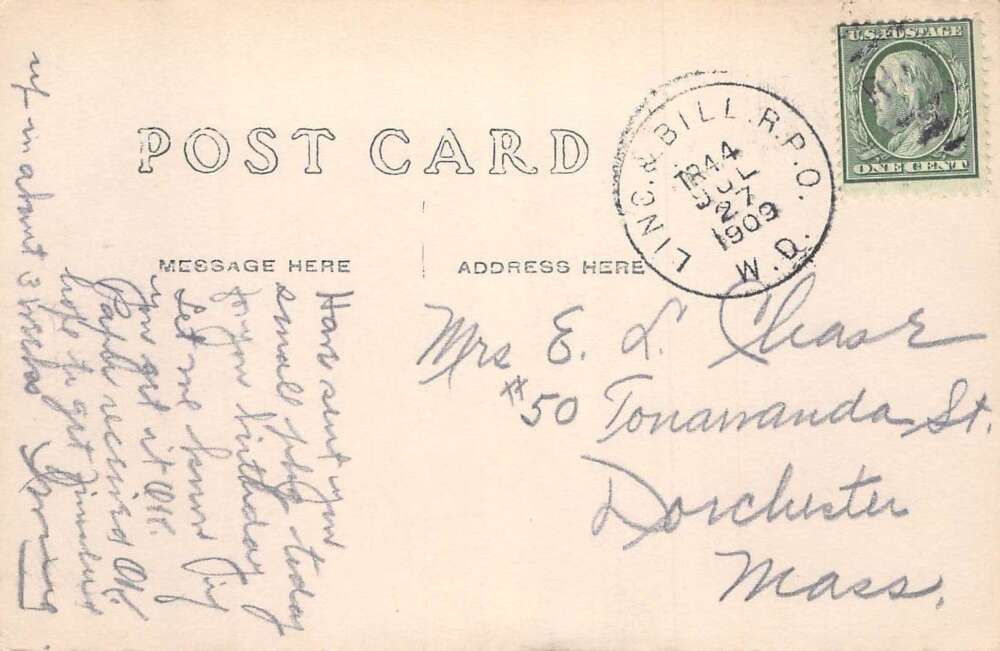 POST CARD
U.S. POSTAGE
ONE CENT
LINC. & BILL. R.P.O.
TR 44
JUL
27
1909
W.D.
MESSAGE HERE
ADDRESS HERE
Mrs E. L. Chase
#50 Tonawanda St.
Dorchester
Mass.
Have sent you
small pkg today
for your birthday
Let me know if
you get it OK.
received OK.
hope to get finished
up in about 3 weeks